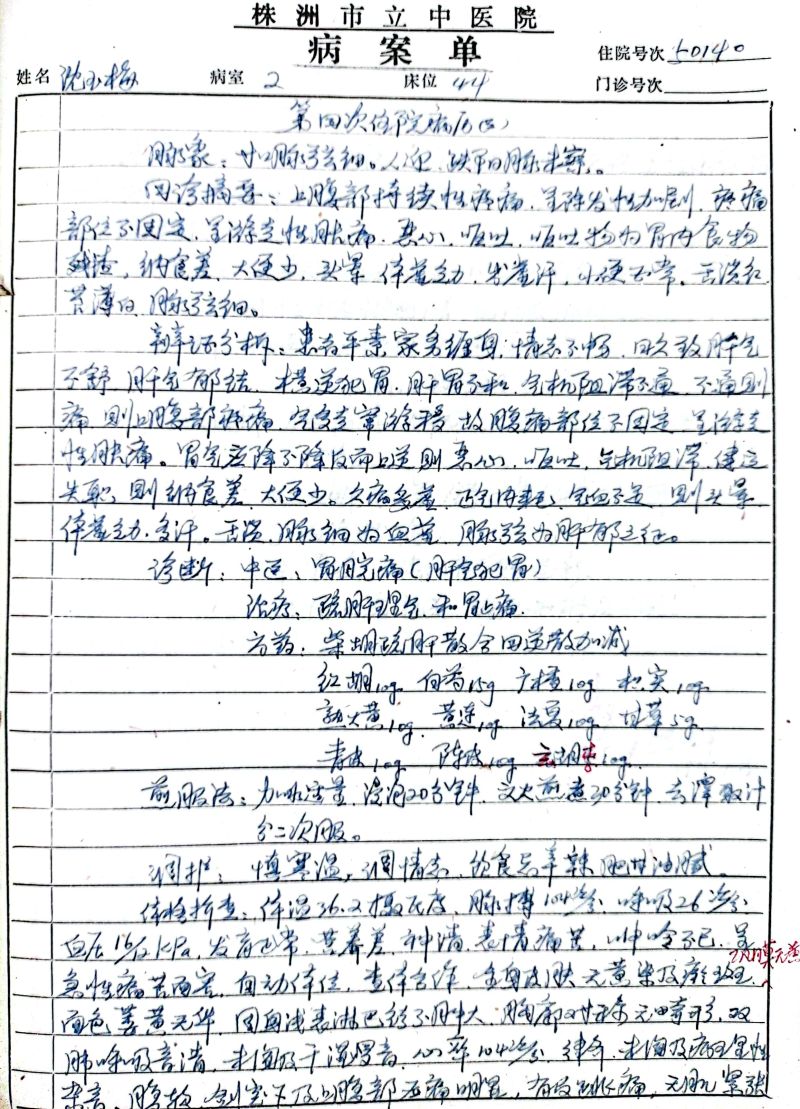 株洲市立中医院
病案单
住院号次 50140
姓名 沈玉梅 病室 2 床位 44 门诊号次
第四次住院病历(2)
脉象：寸口脉弦细。人迎、趺阳脉未察。
四诊摘要：上腹部持续性疼痛，呈阵发性加剧，疼痛
部位不固定，呈游走性胀痛，恶心，呕吐，呕吐物为胃内食物
残渣，纳食差，大便少，头晕，体倦乏力，出虚汗，小便正常，舌淡红
苔薄白，脉弦细。
辨证分析：患者平素家务缠身，情志不畅，日久致肝气
不舒，肝气郁结，横逆犯胃，肝胃不和，气机阻滞不通，不通则
痛，则上腹部疼痛，气度走窜游移，故腹痛部位不固定，呈游走
性胀痛。胃气应降不降反而上逆则恶心，呕吐，气机阻滞，健运
失职，则纳食差，大便少。久病多虚，正气内耗，气血不足，则头晕
体倦乏力，多汗。舌淡，脉细为血虚，脉弦为肝郁之征。
诊断：中医：胃脘痛（肝气犯胃）
治疗：疏肝理气，和胃止痛。
方药：柴胡疏肝散合四逆散加减
红胡10g 白芍15g 广楂10g 枳实10g
熟大黄10g 黄连10g 法夏10g 甘草5g
青皮10g 陈皮10g 玄胡10g
煎服法：加水适量，浸泡20分钟，文火煎煮30分钟，去渣取汁
分二次服。
调护：慎寒温，调情志，饮食忌辛辣肥甘油腻。
体格检查：体温36.2摄氏度，脉搏104次/分，呼吸26次/分
血压16/12 kPa，发育正常，营养差，神清，表情痛苦，呻吟不已，呈
急性痛苦面容，自动体位，查体合作，全身皮肤无黄染及瘀斑，
面色萎黄无华，全身浅表淋巴结不肿大，胸廓对称无畸形，双
肺呼吸音清，未闻及干湿啰音，心率104次/分，律齐，未闻及病理性
杂音，腹软，剑突下及上腹部压痛明显，有反跳痛，无肌紧张